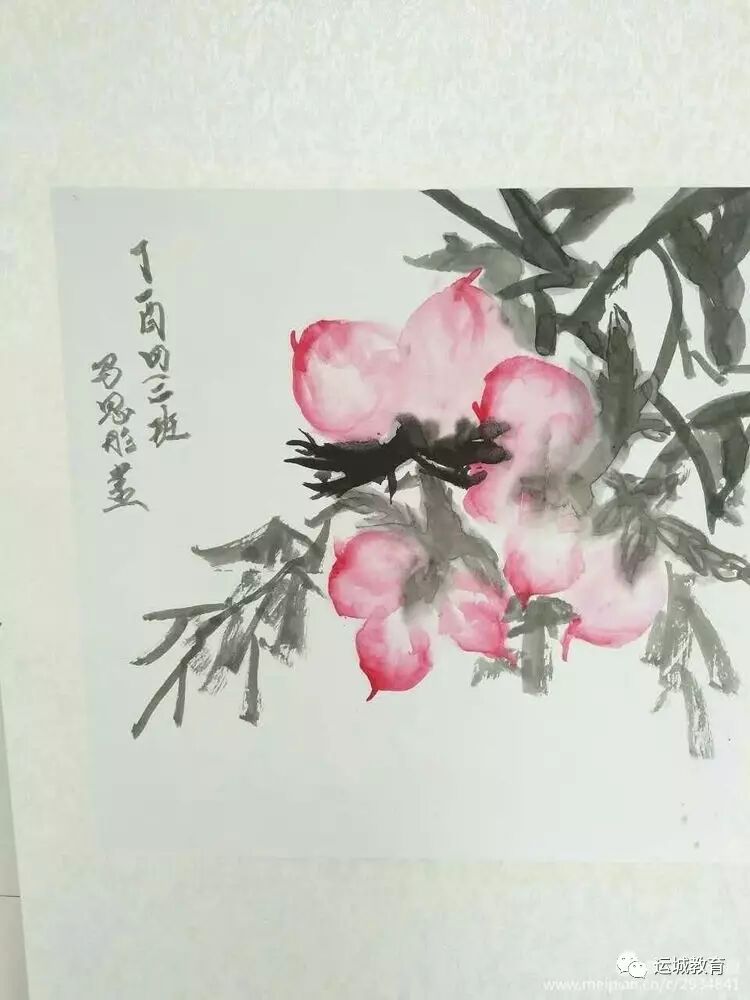 丁酉四三班
马思彤
运城教育
www.meipian.cn/c/2934841